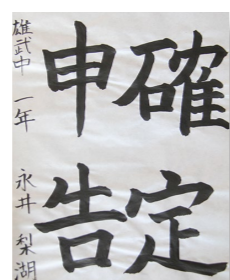 確定
申告
雄武中 一年 永井 梨湖